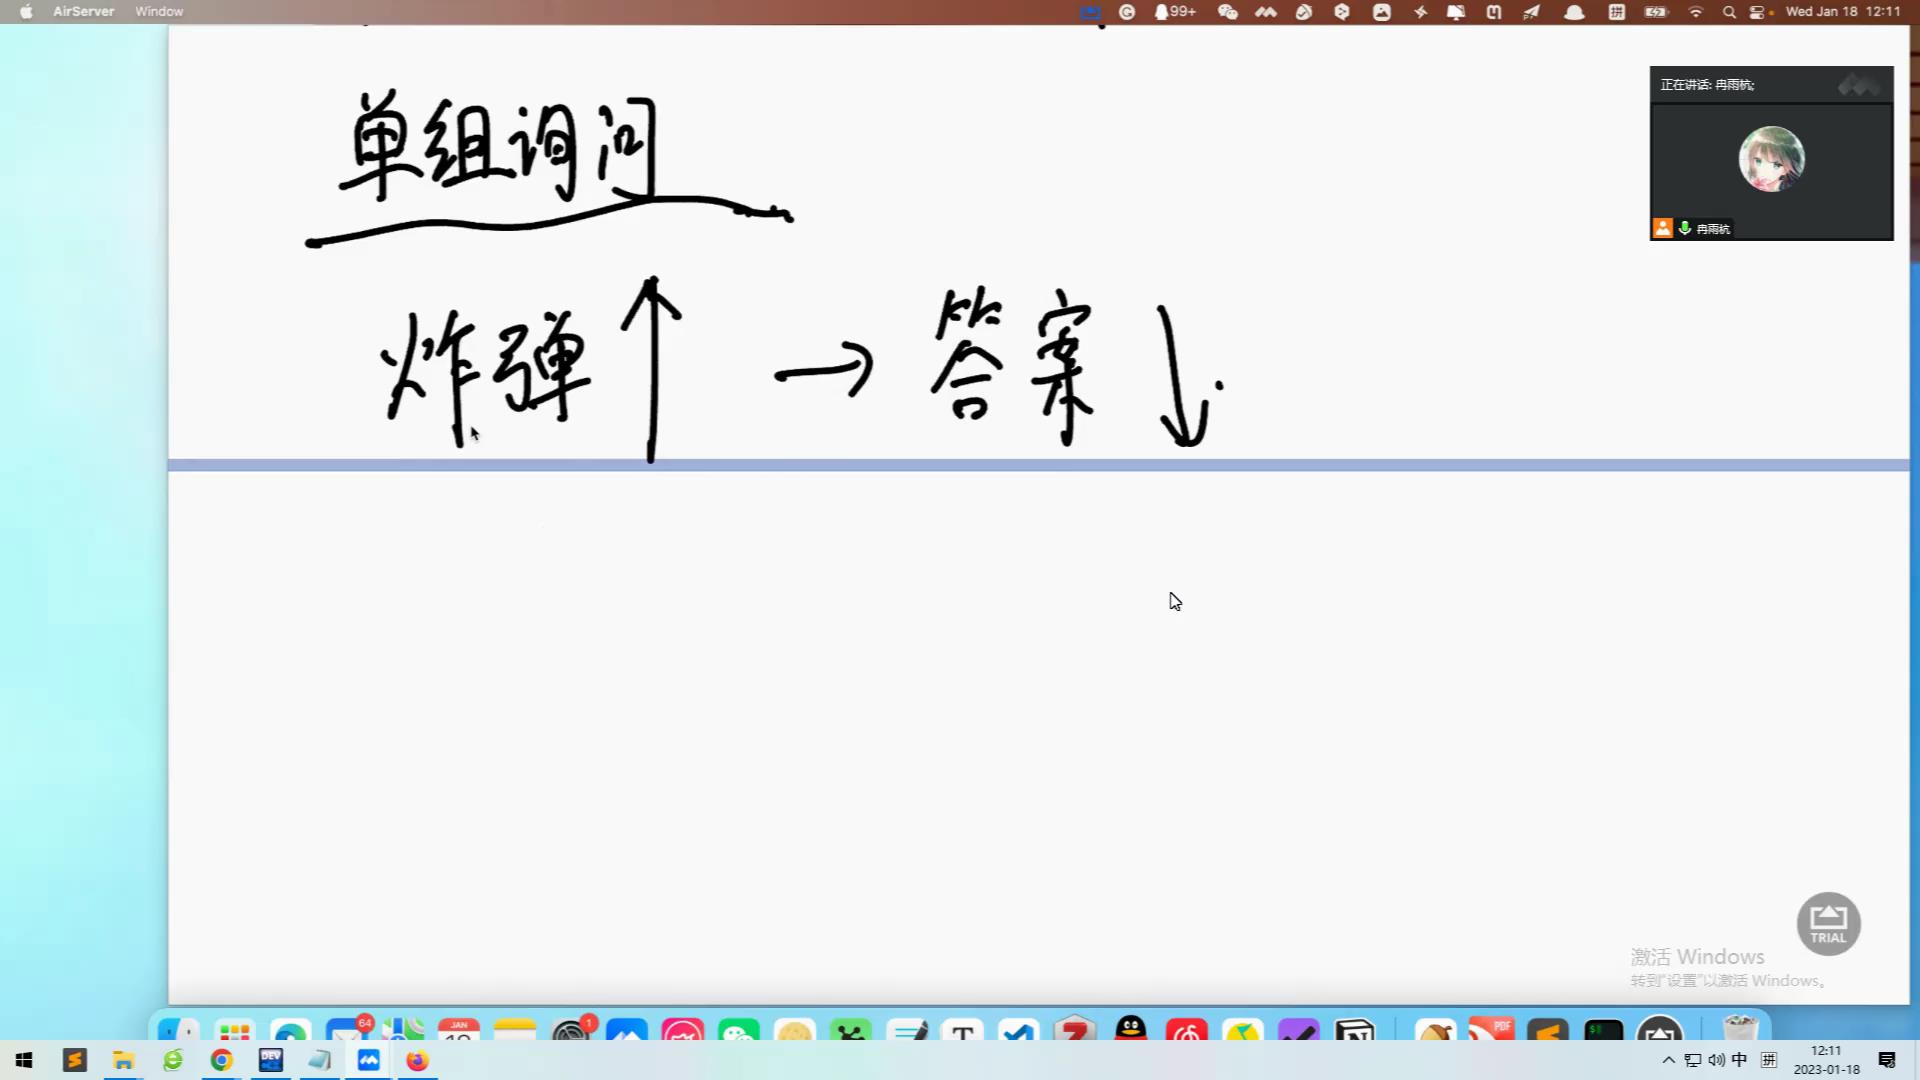 AirServer Window 99+ 拼 Wed Jan 18 12:11
正在讲话: 冉雨杭;
单组询问
冉雨杭
炸弹↑ → 答案↓.
TRIAL
激活 Windows
转到"设置"以激活 Windows。
64 JAN 1 PDF
DEV
中 拼 12:11
2023-01-18